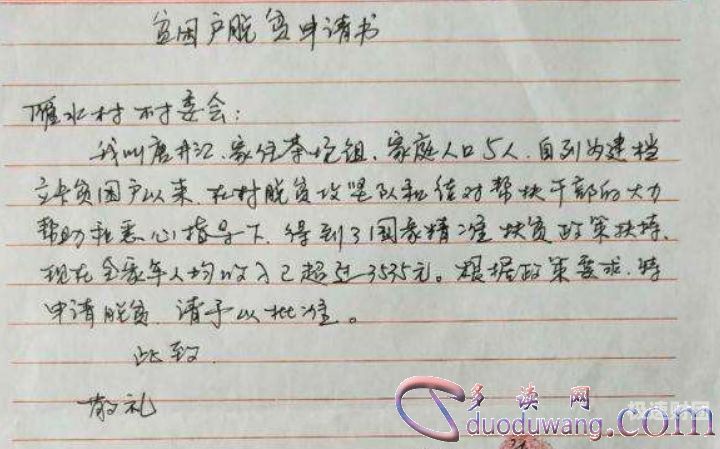 贫困户脱贫申请书
雁水村村委会：
我叫唐井江、家住茶坨组、家庭人口5人、自列为建档
立卡贫困户以来、在村脱贫攻坚队和结对帮扶干部的大力
帮助和悉心指导下、得到了国家精准扶贫政策扶持、
现在全家年人均收入已超过3535元。根据政策要求、特
申请脱贫、请予以批准。
此致
敬礼
多读网
duoduwang.com
极速财团